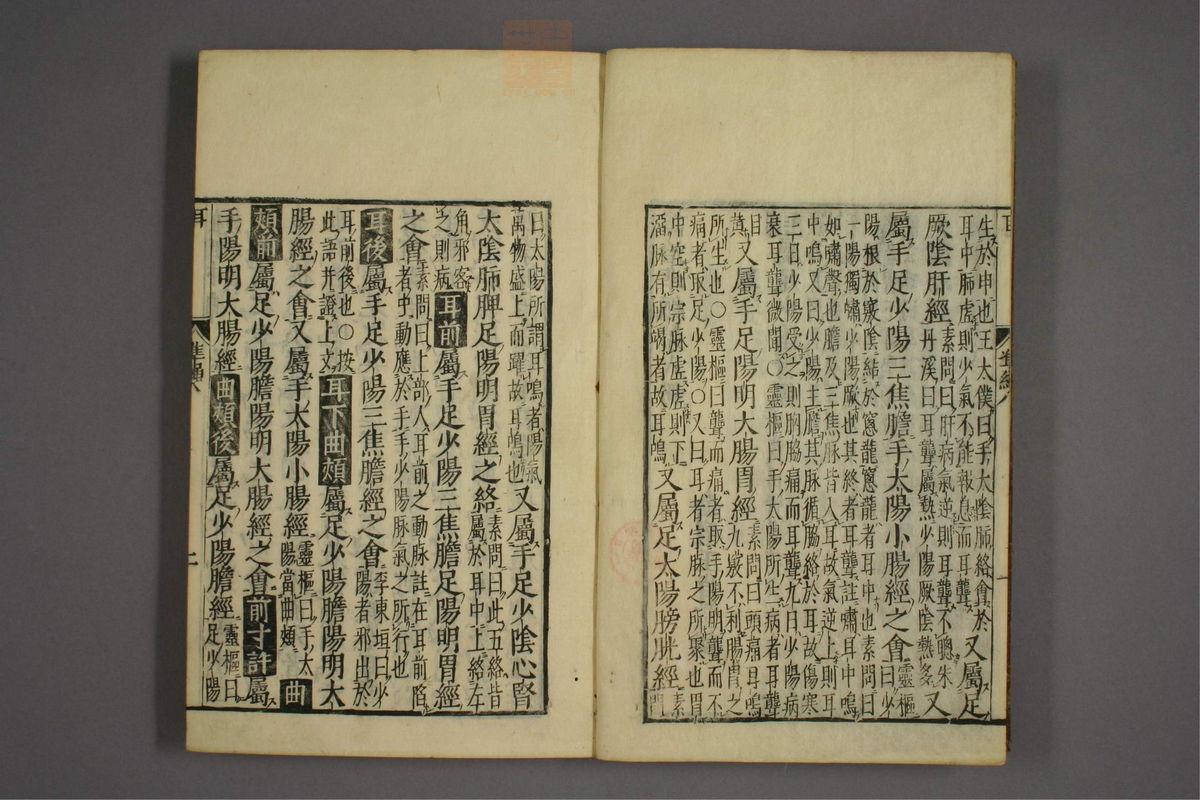 生於申也王太僕曰手太陰肺絡會於
耳中肺虛則少氣不能報息而耳聾又屬足
厥陰肝經素問曰肝病氣逆則耳聾不聰朱
丹溪曰耳聾屬熱少陽厥陰熱多又
屬手足少陽三焦膽手太陽小腸經之會靈樞
曰少
陽根於竅陰結於窻籠窻籠者耳中也素問曰
一陽獨嘯少陽厥也其終者耳聾註嘯耳中鳴
如嘯聲也膽及三焦脉皆入耳故氣逆上則耳
中鳴又曰少陽主膽其脉循脇絡於耳故傷寒
三日少陽受之則胸脇痛而耳聾九日少陽病
衰耳聾微聞○靈樞曰手太陽所生病者耳聾
目
黃又屬手足陽明大腸胃經素問曰頭痛耳鳴
九竅不利腸胃之
所生也○靈樞曰聾而痛者取手陽明聾而不
痛者取足少陽○又曰耳者宗脉之所聚也胃
中空則宗脉虛虛則下
溜脉有所竭者故耳鳴又屬足太陽膀胱經素
問
曰太陽所謂耳鳴者陽氣
萬物盛上而躍故耳鳴也又屬手足少陰心腎
太陰肺脾足陽明胃經之絡素問曰此五絡皆
屬於耳中上絡左
角邪客
之則病耳前屬手足少陽三焦膽足陽明胃經
之會素問曰上部人耳前之動脉註在耳前陷
者中動應於手手少陽脉氣之所行也
耳後屬手足少陽三焦膽經之會李東垣曰少
陽者邪出於
耳前後也○按
此語并證上文耳下曲頰屬足少陽膽陽明大
腸經之會又屬手太陽小腸經靈樞曰手太
陽當曲頰曲
頰前屬足少陽膽陽明大腸經之會前寸許屬
手陽明大腸經曲頰後屬足少陽膽經靈樞曰
足少陽